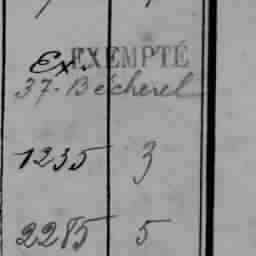 Ex. EXEMPTÉ
37-Bécherel
1235 3
2285 5